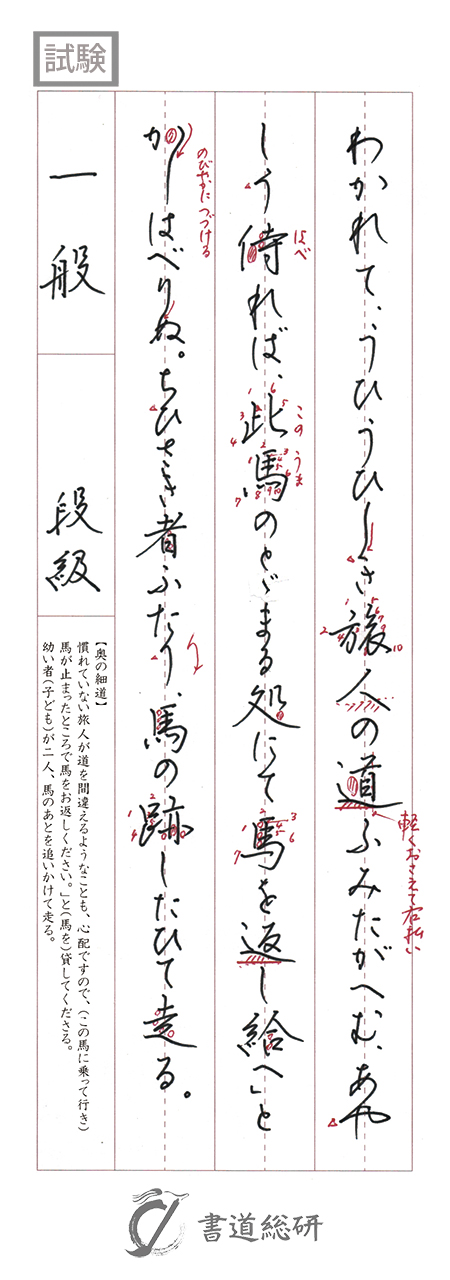 試験
わかれて、うひうひしき旅人の道ふみたがへむ、あや
しう侍れば、此馬のとゞまる処にて馬を返し給へ」と
かしはべりぬ。ちひさき者ふたり、馬の跡したひて走る。
はべ
この うま
のびやかに つづける
軽くおさえて右払い
一般
段級
【奥の細道】
慣れていない旅人が道を間違えるようなことも、心配ですので、(この馬に乗って行き)
馬が止まったところで馬をお返しください。」と(馬を)貸してくださる。
幼い者(子ども)が二人、馬のあとを追いかけて走る。
書道総研